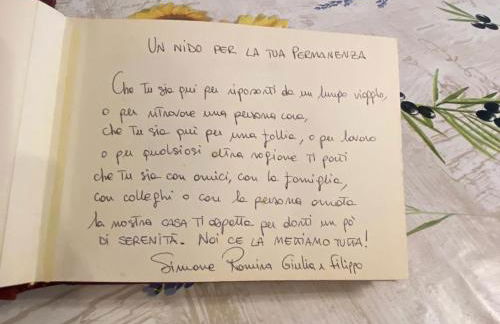 UN NIDO PER LA TUA PERMANENZA
Che Tu sia qui per riposarti da un lungo viaggio,
o per ritrovare una persona cara,
che Tu sia qui per una follia, o per lavoro
o per qualsiasi altra ragione Ti porti
che Tu sia con amici, con la famiglia,
con colleghi o con la persona amata
la nostra CASA TI aspetta per darti un po'
DI SERENITÀ. NOI CE LA METTIAMO TUTTA!
Simone Romina Giulia e Filippo